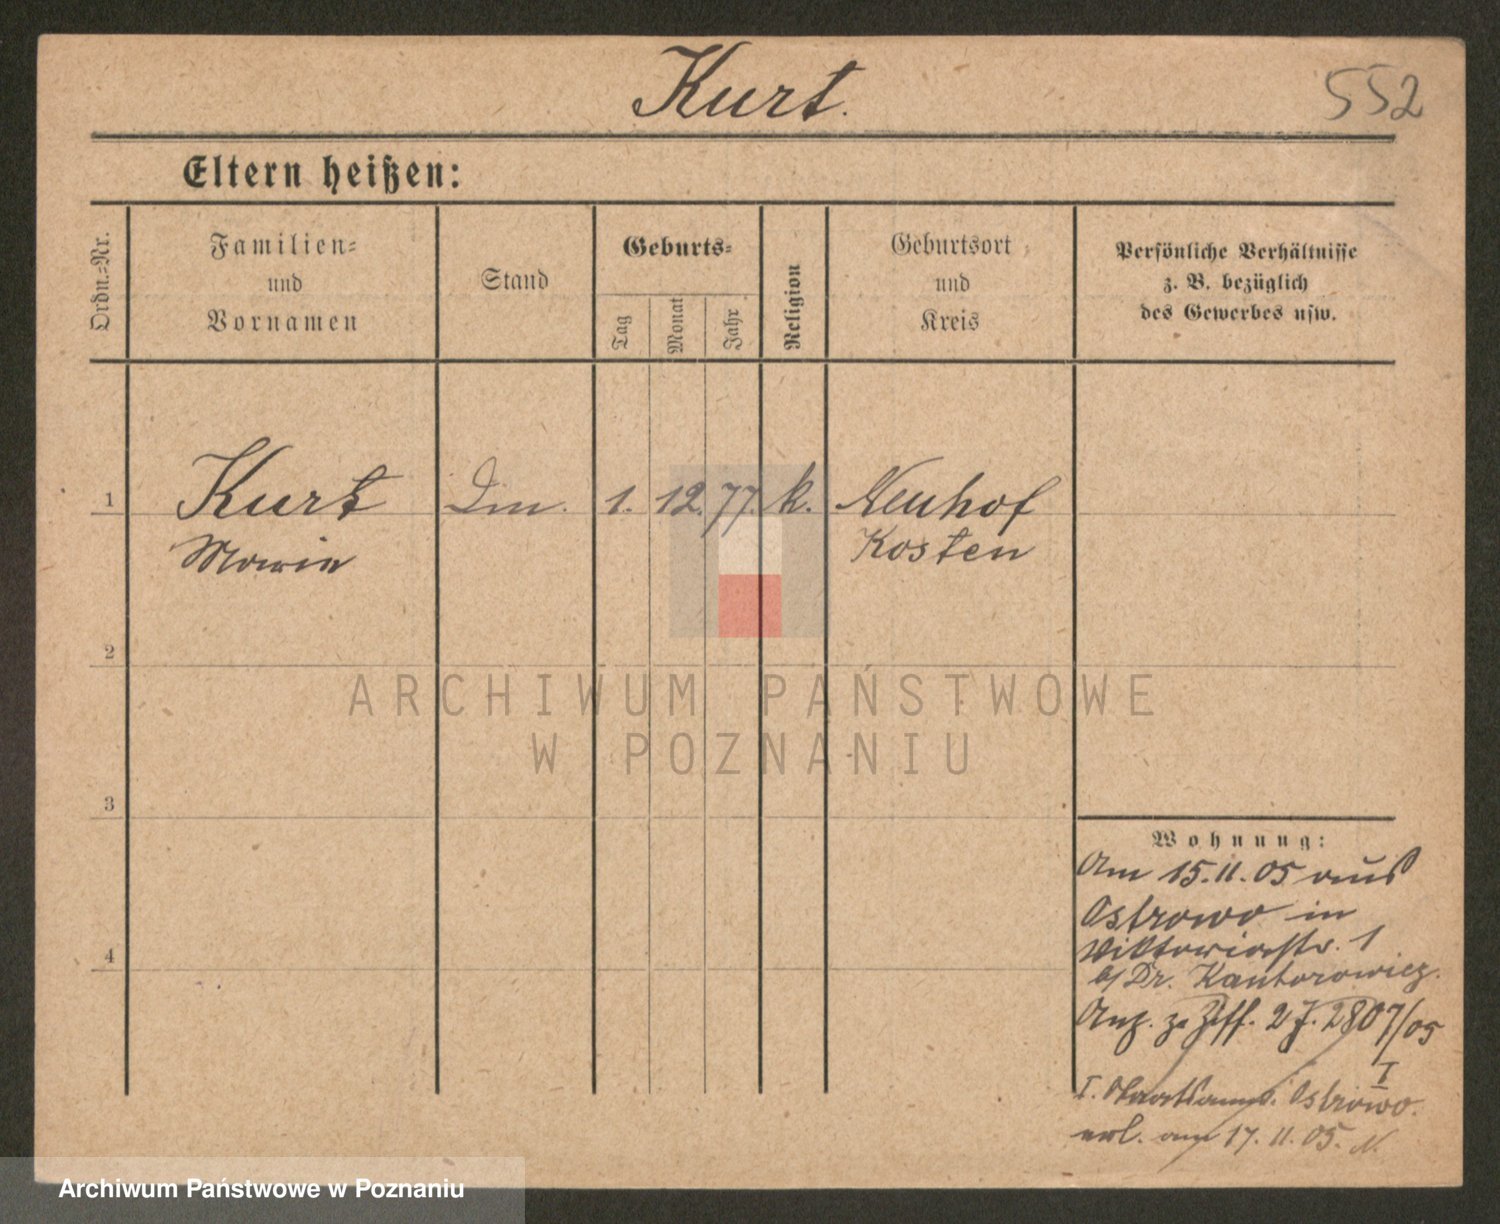 Kurt.
552
Eltern heißen:
Ordn.-Nr.
Familien-
und
Vornamen
Stand
Geburts-
Tag
Monat
Jahr
Religion
Geburtsort
und
Kreis
Persönliche Verhältnisse
z. B. bezüglich
des Gewerbes usw.
1
Kurt
1. 12. 77. k.
Neuhof
Maria
Kosten
2
ARCHIWUM PAŃSTWOWE
W POZNANIU
3
Wohnung:
Am 15.11.05 aus
Ostrowo in
Viktoriastr. 1
b/ Dr. Kantorowicz.
4
2 J. 2807/05
I
I. Ostrowo.
erl. am 17.11.05. N.
Archiwum Państwowe w Poznaniu